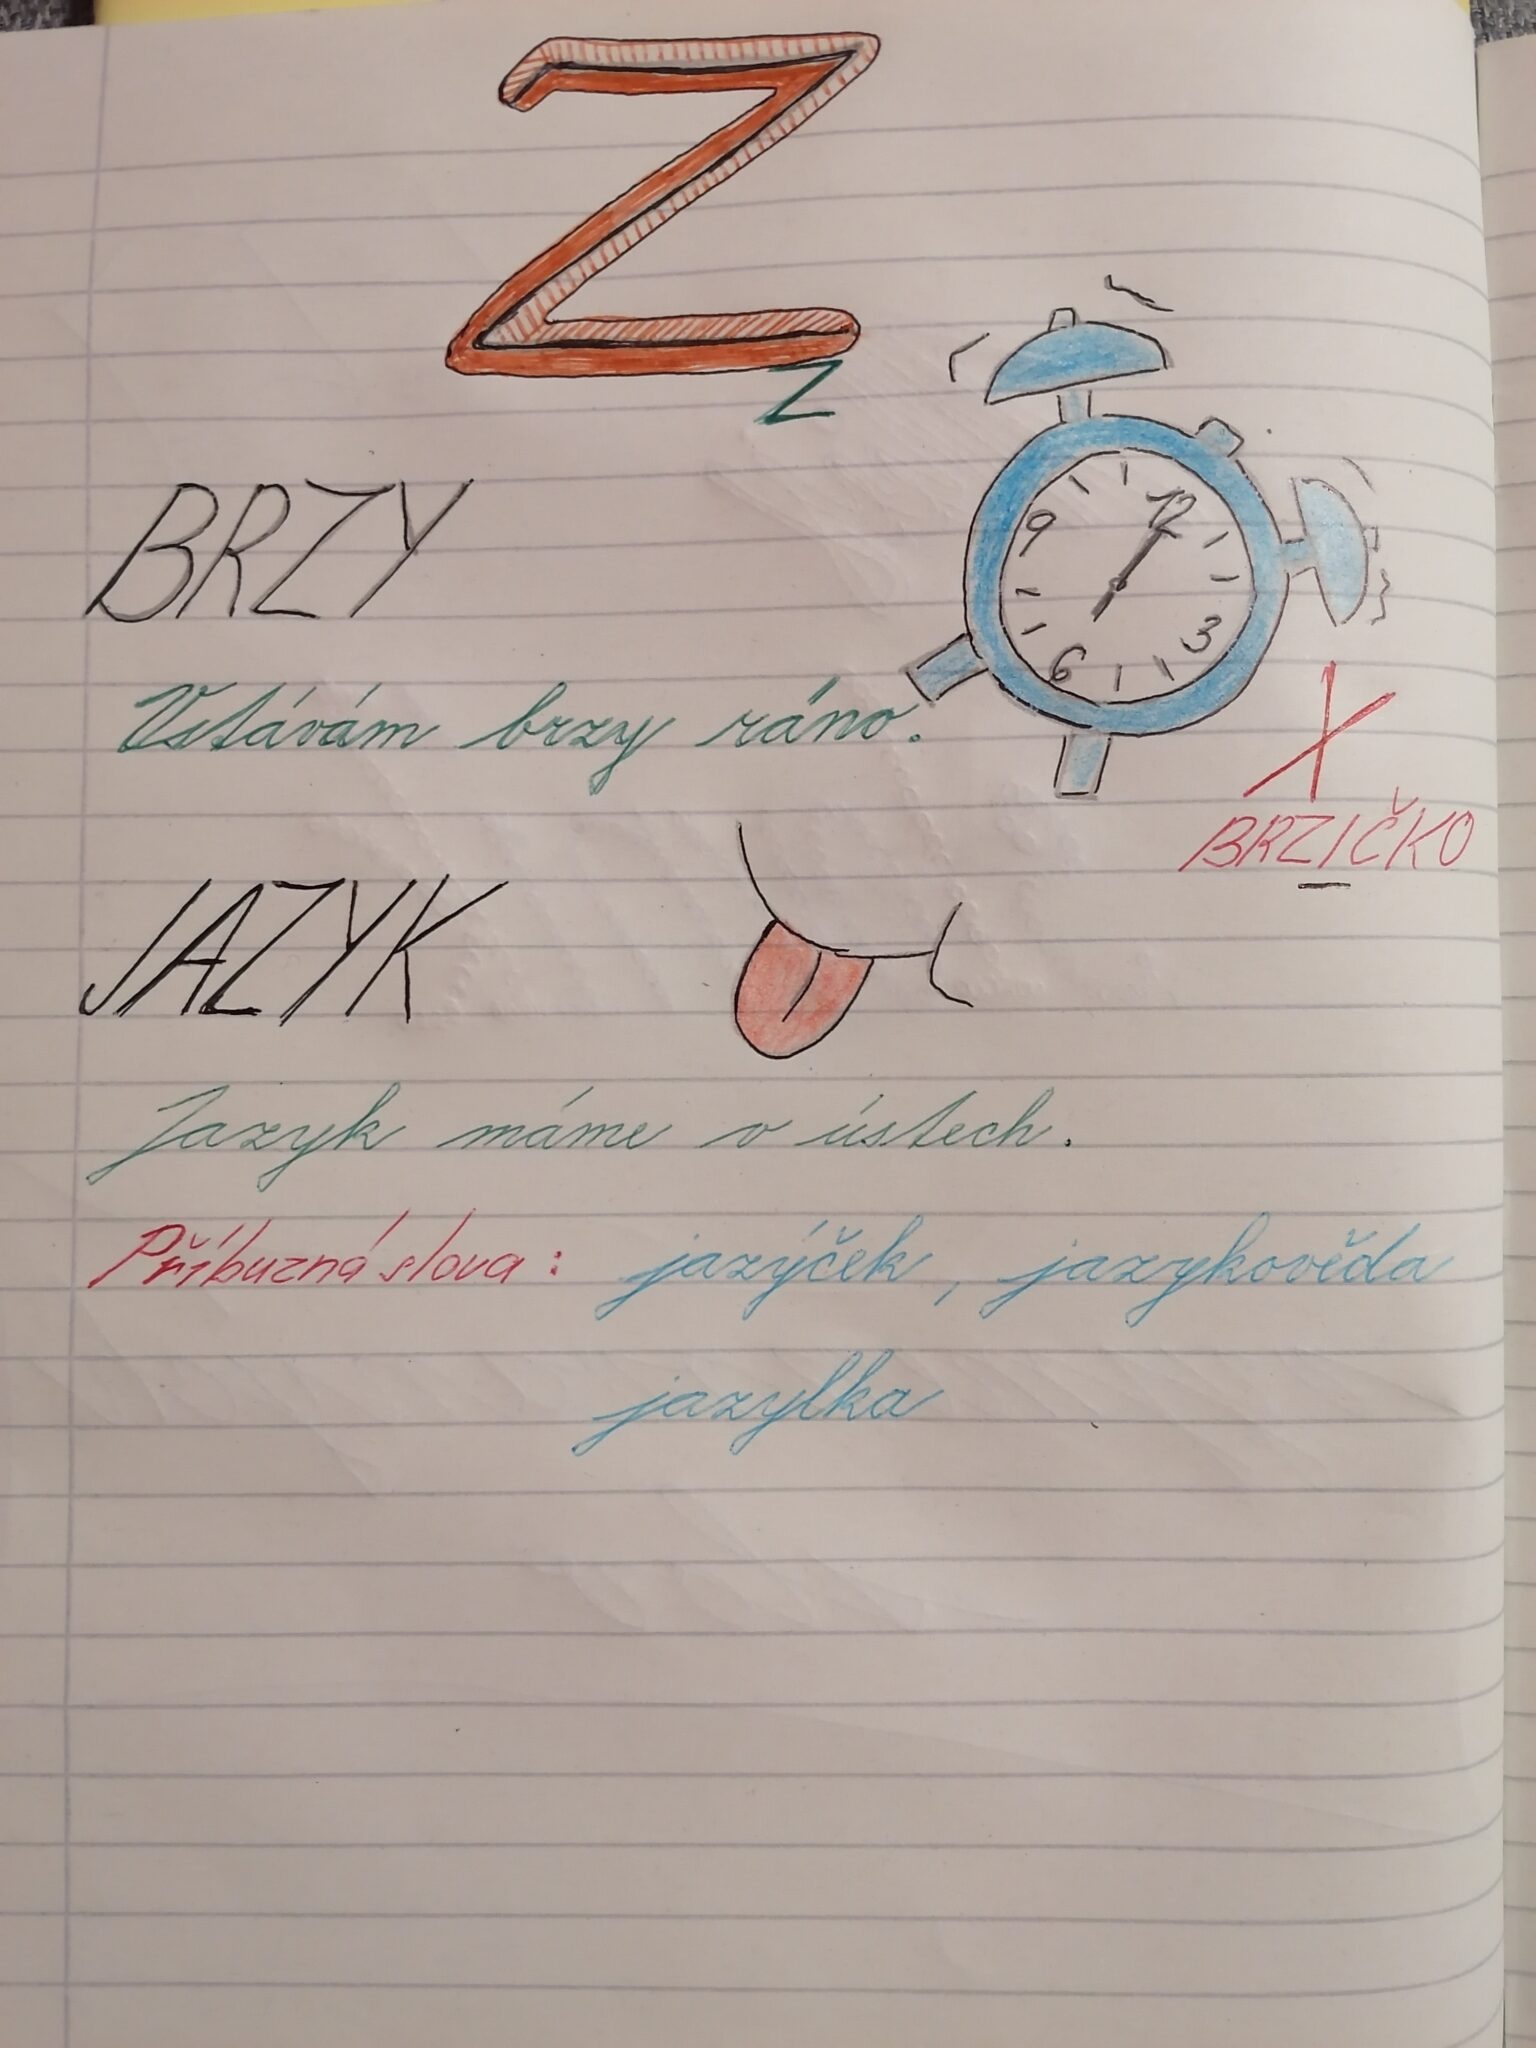 Z
Z
BRZY
9 12 3 6
Vstávám brzy ráno.
X
BRZIČKO
JAZYK
Jazyk máme v ústech.
Příbuzná slova: jazýček, jazykověda
jazylka